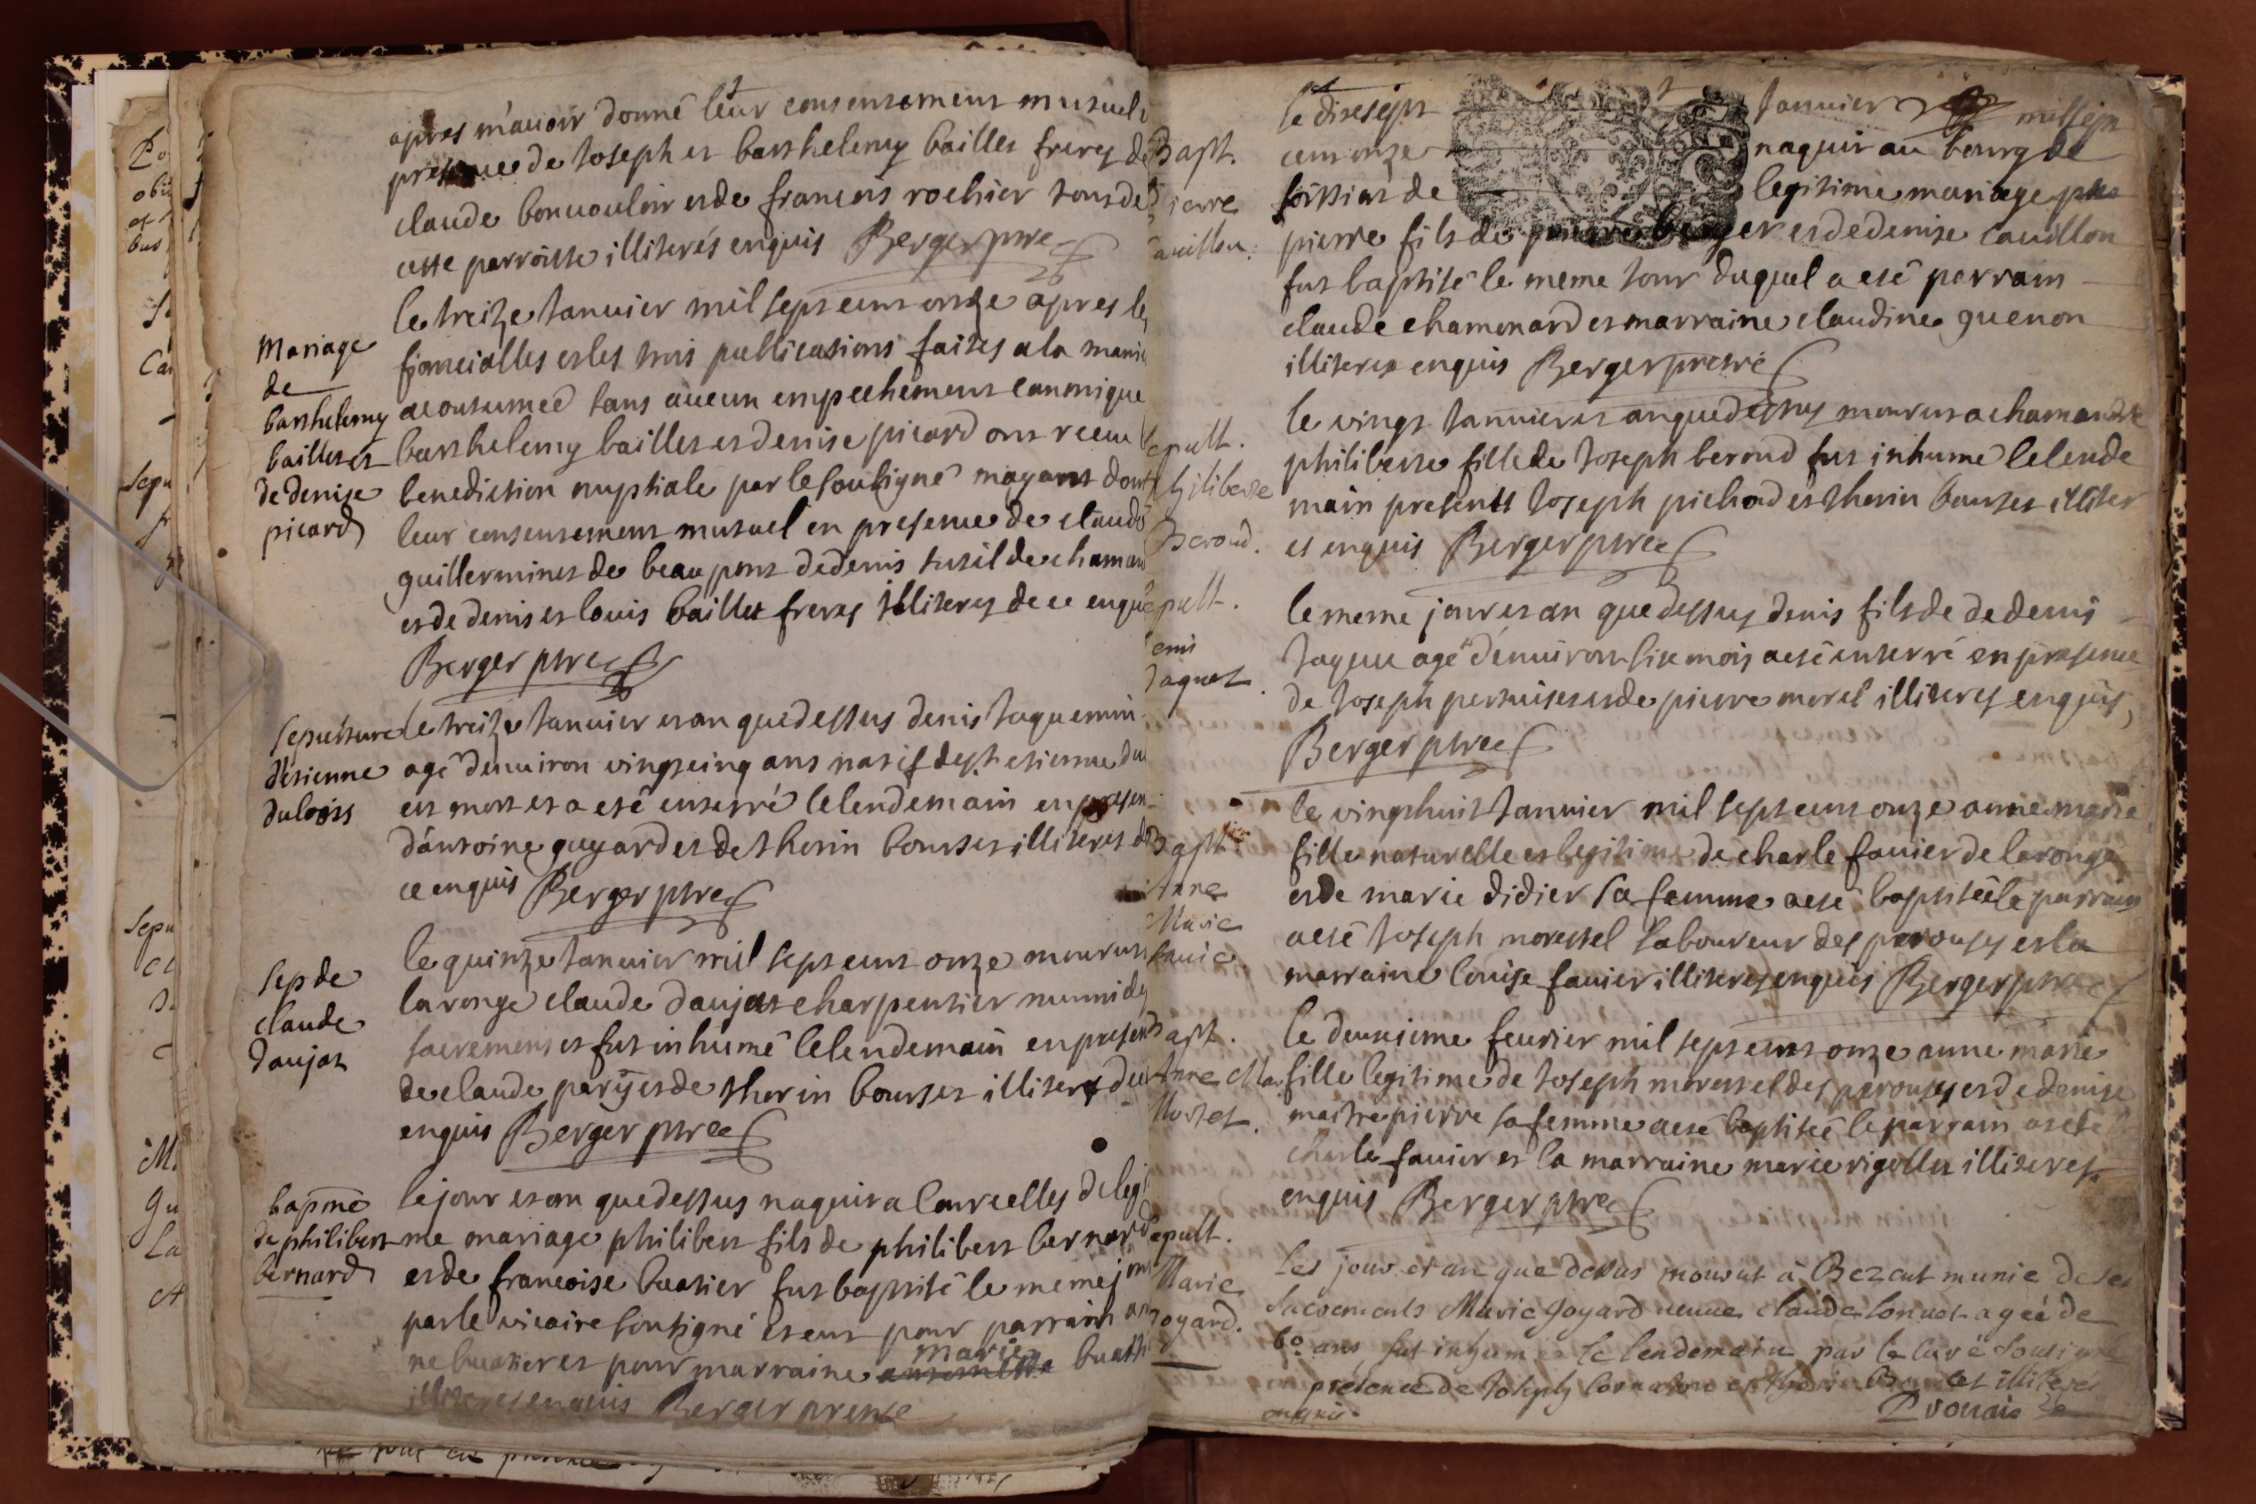 apres m'auoir donné leur consensement musuel
presence de Joseph et barthelemy bailles freres de
claude bonuouloir et de francois rochier tous de
cette parroisse illiterés enquis Berger ptre
le treize januier mil sept cent onze apres les
fiancialles et les trois publications faites a la mani
acoutumeé sans aucun empechement canonique
barthelemy bailles et denise picard ont receu
benediction nuptiale par le soussigné mayant don
leur consensement mutuel en presence de claude
guillerminet de beaupont de denis tusil de chaman
et de denis et louis baillet freres illiteres de ce enqui
Berger ptre
Mariage
de
barthelemy
bailles et
de denise
picard
le treize januier et an que dessus denis jaquemin
agé denuiron vingt cinq ans natif de st estienne du
est mort et a esté enterré le lendemain en presen
dantoine guyard et de thorin bourset illiteres de
ce enquis Berger ptre
sepulture
d'estienne
dulois
le quinze januier mil sept cent onze mourut
laronge claude daujat charpentier munni des
sacremens et fut inhumé le lendemain en presen
de claude paris et de thorin bourset illiteres de
enquis Berger ptre
sep de
claude
daujat
le jour et an que dessus naquit a courcelles de legi
me mariage philibert fils de philibert bernard
et de francoise buatier fut baptisé le meme jour
par le vicaire soussigné et eut pour parrain an
ne buatier et pour marraine marie buath
illiteres enquis Berger prestre
bapme
de philibert
bernard
Bapt.
pierre
cauillon.
le diseseptt januier mil sept
cent onze naquit au bourg de
foissiat de legitime mariage
pierre fils de pierre berger et de denise cauillon
fut baptisé le meme jour duquel a esté parrain
claude chamonard et marraine claudine guenon
illiteres enquis Berger prestre
Sepult.
philiberte
Beroud.
le vingt januier et an que dessus mourut a chamandre
philiberte fille de Joseph beroud fut inhumé le lende
main presents Joseph pichod et thorin bourset illiter
es enquis Berger ptre
Sepult.
Denis
Jaquet.
le meme jour et an que dessus denis fils de de denis
jaquet agé denuiron six mois a esté enterré en presence
de Joseph pertuiset et de pierre morel illiteres enquis,
Berger ptre
Bapt.
Anne
Marie
fauier
le vingt huit januier mil sept cent onze anne marie
fille naturelle et legitime de charle fauier de laronge
et de marie didier sa femme a esté baptiseé le parrain
a esté Joseph morestel laboureur des perouses et la
marraine louise fauier illiteres enquis Berger ptre
Bapt.
Anne Ma
Mostet.
le deuxieme feurier mil sept cent onze anne marie
fille legitime de Joseph morestel des perouses et de denise
maitrepierre sa femme a esté baptiseé le parrain a esté
charle fauier et la marraine marie rigollet illiteres
enquis Berger ptre
Sepult.
Marie
Joyard.
Les jour et an que dessus mourut à Bezent munie de ses
Sacrements Marie Joyard veuue claude Connet ageé de
60 ans, fut inhumeé le lendemain par le curé soussigné
presence de Joseph et thorin Bourset illiteres
enquis.